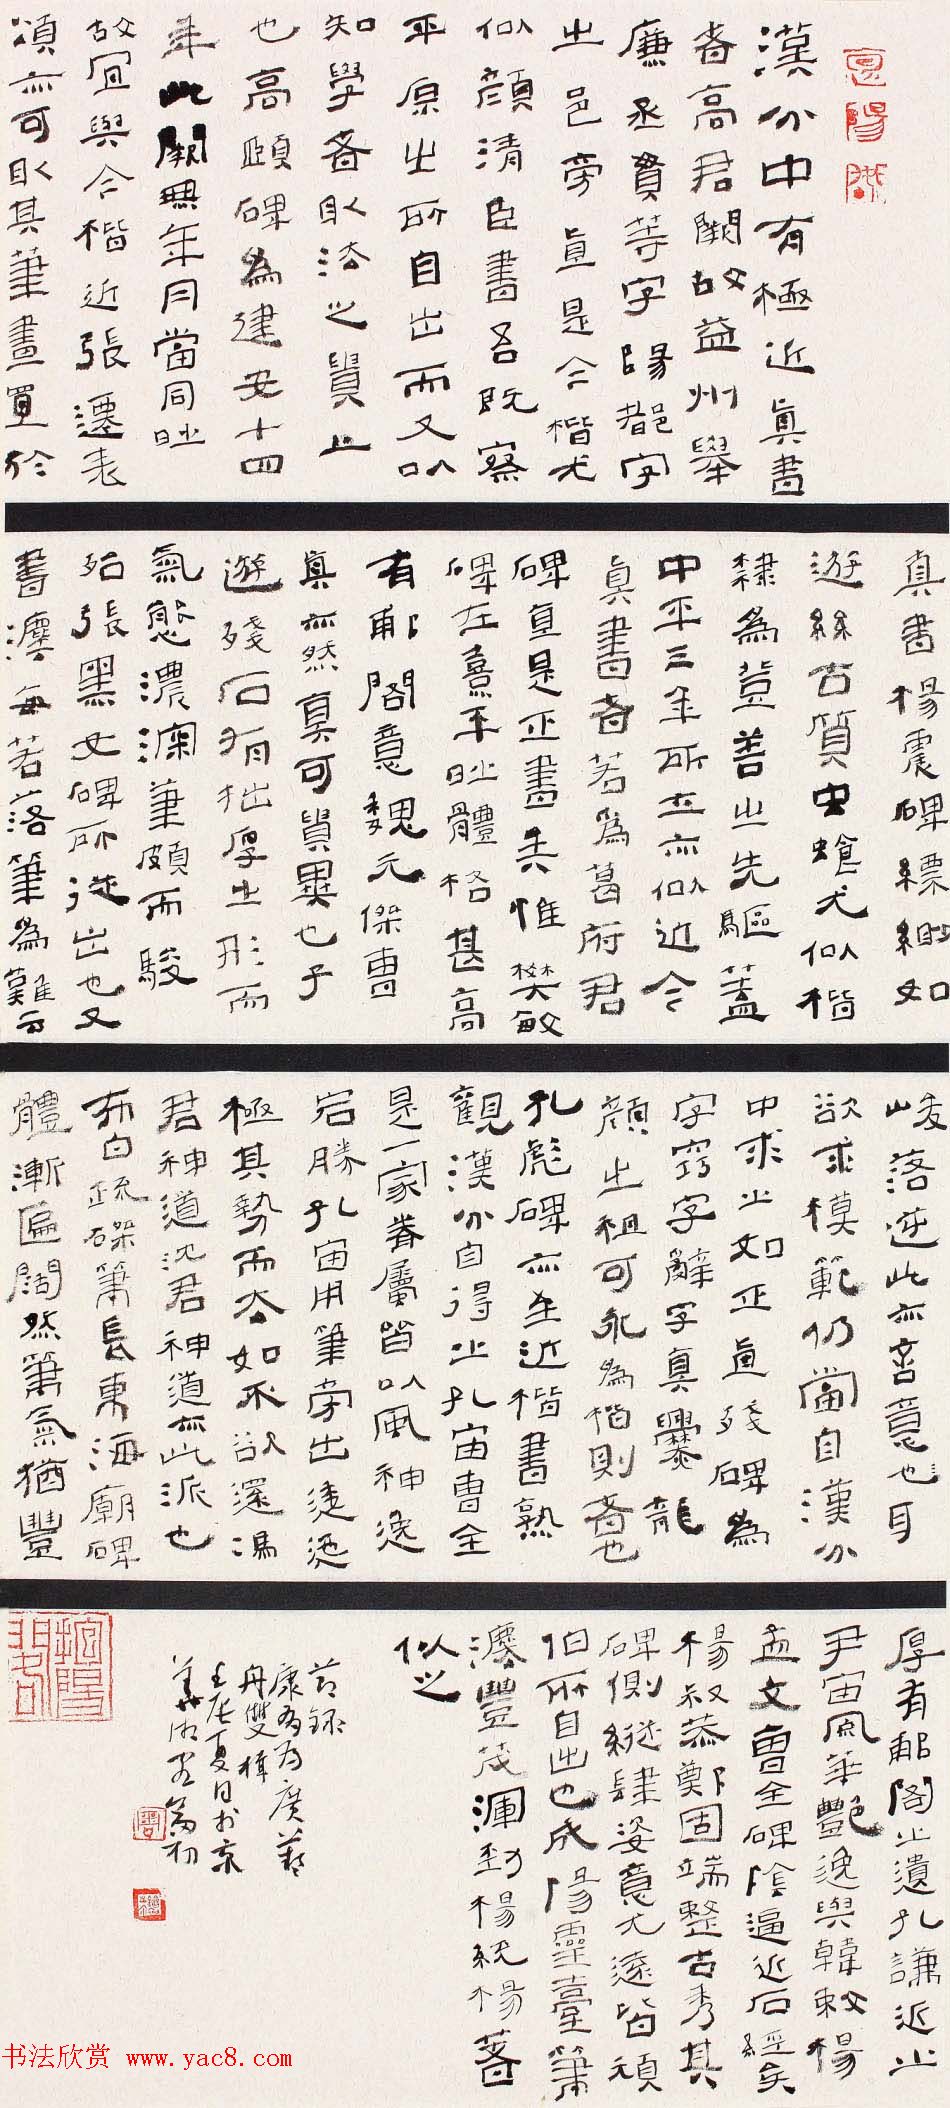 漢分中有極近真書
者高君闕故益州舉
廉丞貫等字陽都字
之邑旁直是今楷尤
似顏清臣書吾既察
平原之所自出而又以
知學者取法之貴上
也高頤碑為建安十四
年此闕無年月當同時
故宜與今楷近張遷表
頌亦可取其筆畫置於
真書楊震碑縹緲如
遊絲古質虫蝕尤似楷
隸為登善之先驅蓋
中平三年所立亦似近今
真書者若為葛府君
碑直是正書矣惟樊敏
碑在熹平時體格甚高
有郙閣意魏元傑曹
真亦然真可貴異也子
遊殘石有拙厚之形而
氣態濃深筆頗而駿
殆張黑女碑所從出也又
書法每苦落筆為難云
峻落逆此亦言意也耳
欲求模範仍當自漢分
中求之如正直殘碑為
字竅字辭字真爨龍
顏之祖可永為楷則者也
孔彪碑亦至近楷書熟
觀漢分自得之孔宙曹全
是一家眷屬皆以風神逸
宕勝孔宙用筆旁出逶迤
極其勢而去如不欲還馮
君神道沈君神道亦此派也
布白疏磔筆長東海廟碑
體漸匾闊然筆氣猶豐
厚有郙閣之遺孔謙近之
尹宙風華艷逸與韓敕楊
孟文曹全碑陰逼近石經矣
楊叔恭鄭固端整古秀其
碑側縱肆姿意尤遠皆頑
伯所自出也成陽靈臺筆
法豐茂渾勁楊統楊著
似之
节録
康有为廣藝
舟雙楫
壬辰夏日於京
書法欣赏 www.yac8.com